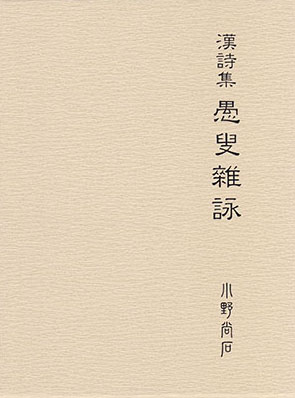 漢詩集 愚叟雑詠
小野尚石